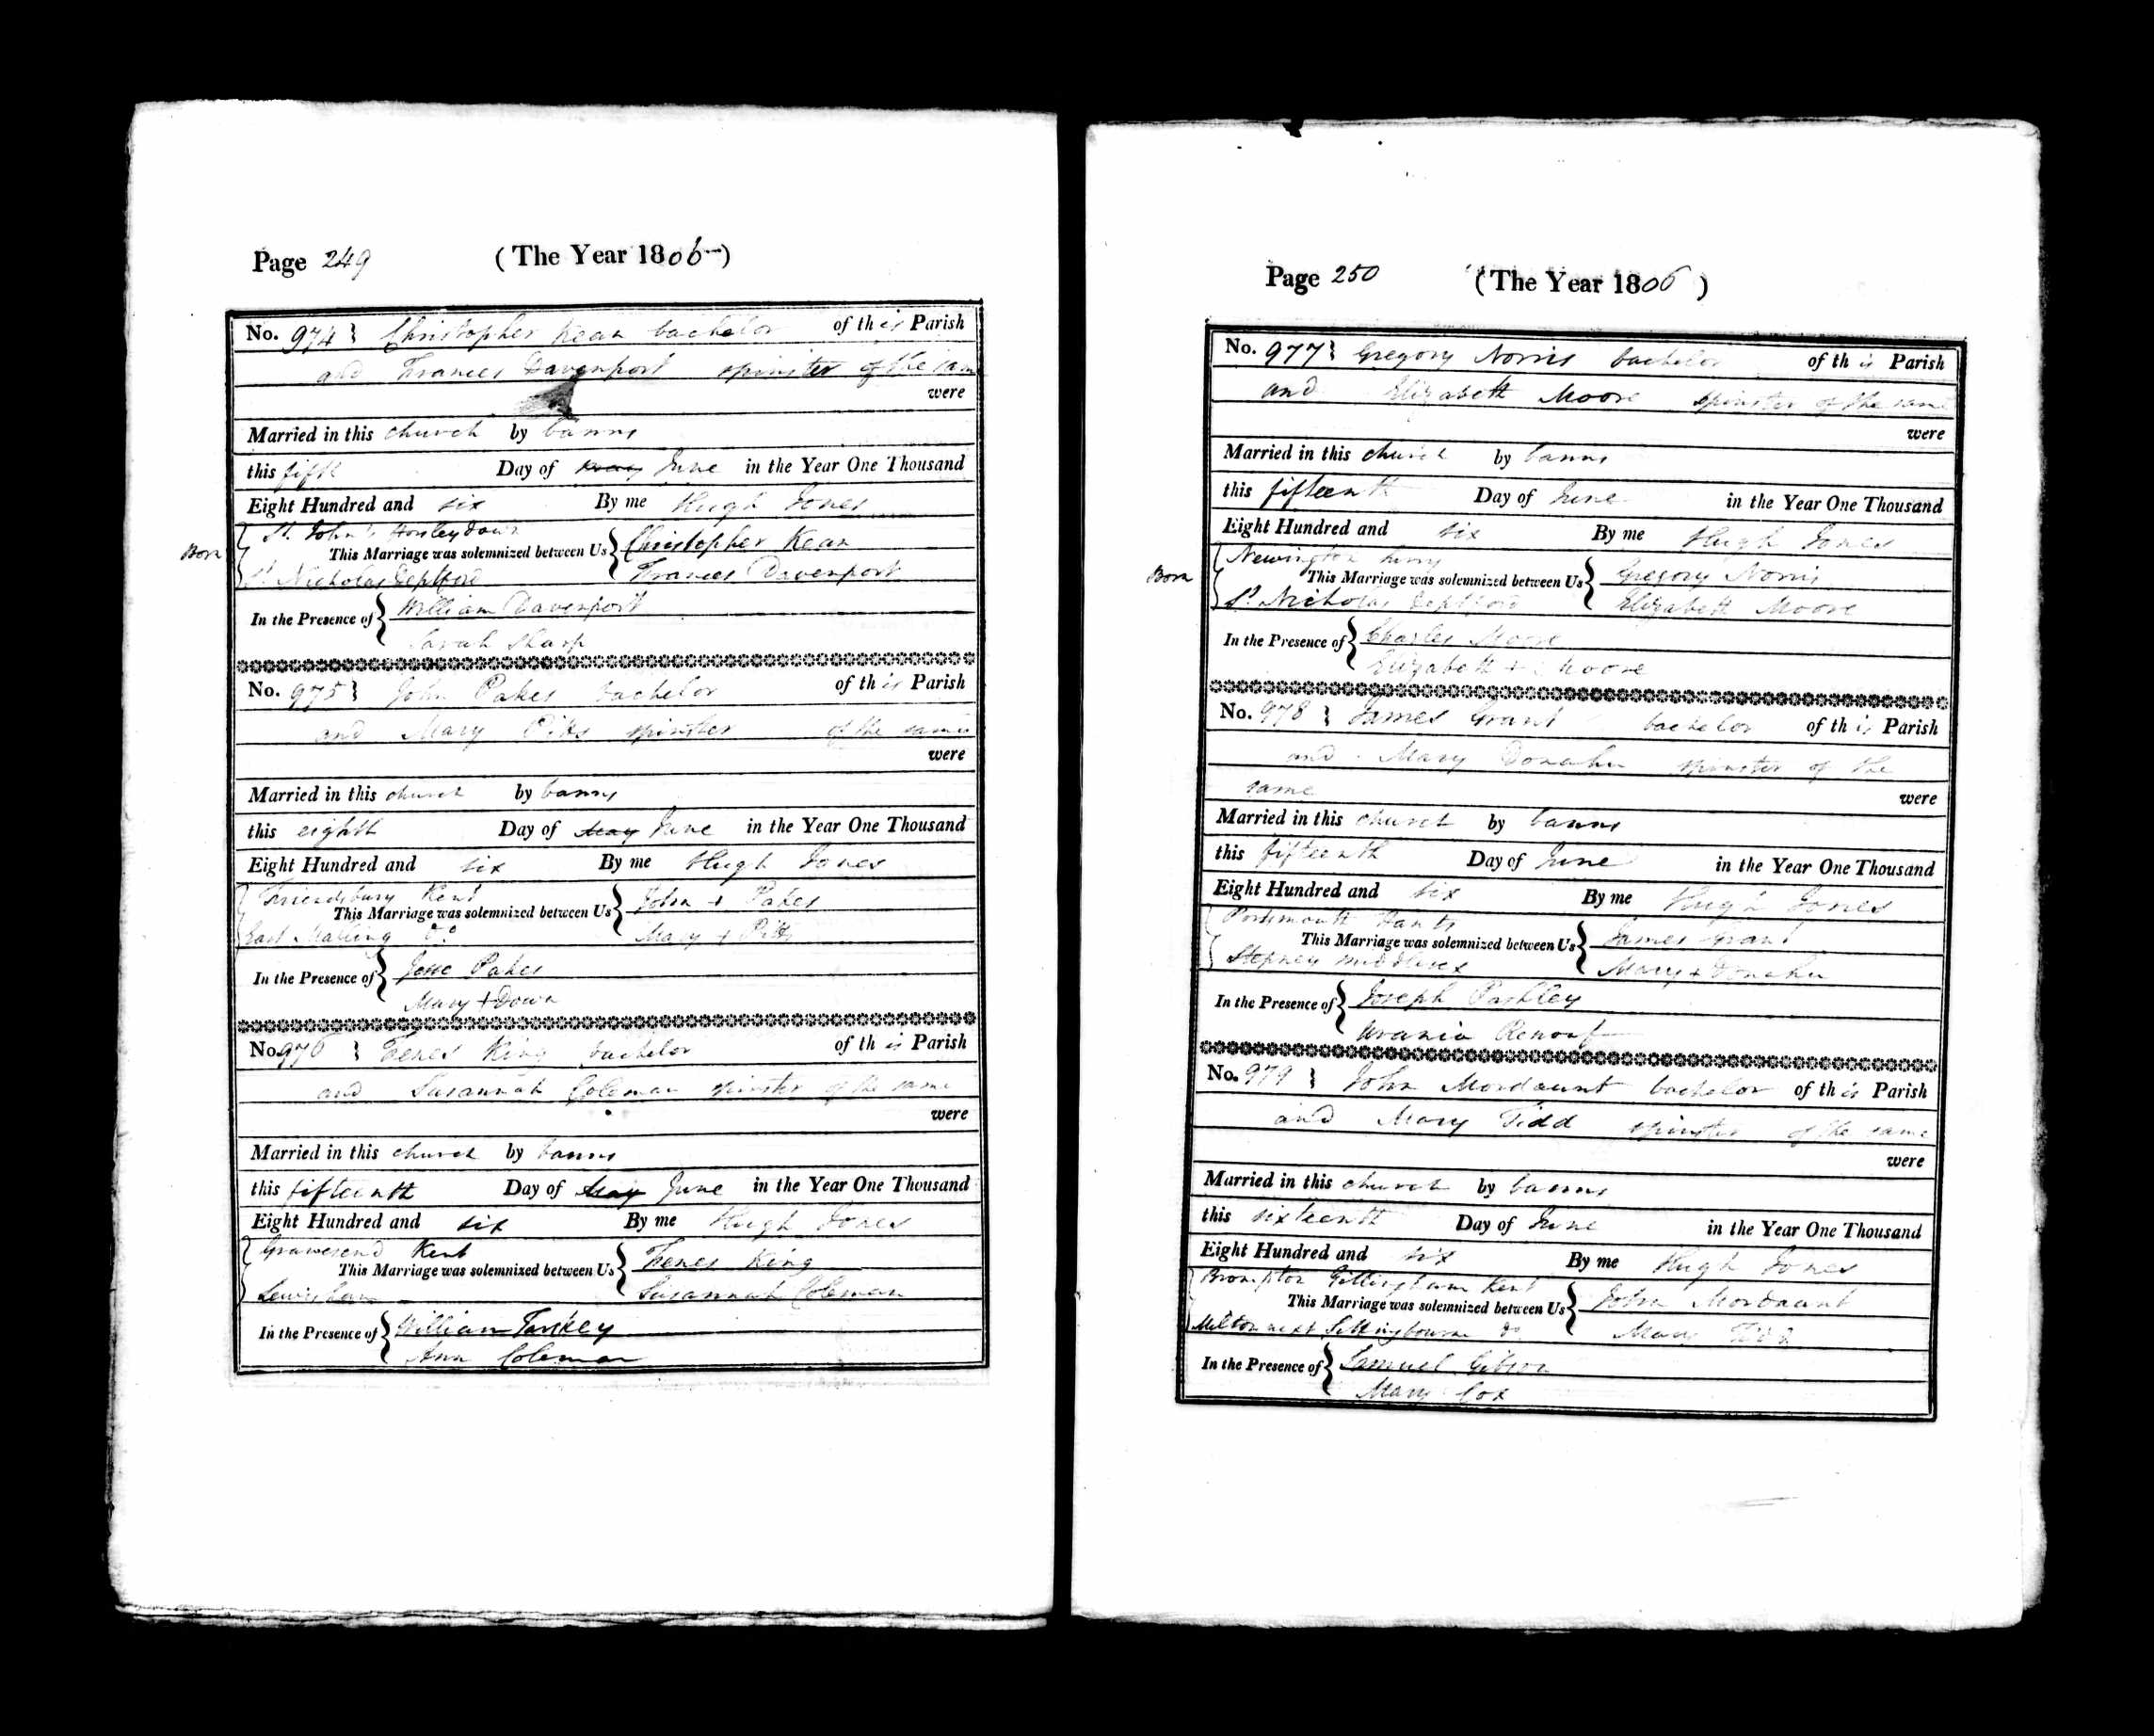 Page 249 (The Year 1806)
No. 974 } Christopher Kean bachelor of this Parish
and Frances Davenport spinster of the same
were
Married in this church by banns
this fifth Day of May June in the Year One Thousand
Eight Hundred and six By me Hugh Jones
St. John's Horsleydown
Born
This Marriage was solemnized between Us { Christopher Kean
St. Nicholas Deptford Frances Davenport
In the Presence of { William Davenport
Sarah Sharp
No. 975 } John Pakes bachelor of this Parish
and Mary Pitts spinster of the same
were
Married in this church by banns
this eighth Day of May June in the Year One Thousand
Eight Hundred and six By me Hugh Jones
Friendsbury Kent
This Marriage was solemnized between Us { John + Pakes
East Malling Do. Mary + Pitts
In the Presence of { Jesse Pakes
Mary + Down
No. 976 } King bachelor of this Parish
and Susannah Coleman spinster of the same
were
Married in this church by banns
this fifteenth Day of May June in the Year One Thousand
Eight Hundred and six By me Hugh Jones
Gravesend Kent
This Marriage was solemnized between Us { King
Lewisham Susannah Coleman
In the Presence of { William
Ann Coleman
Page 250 (The Year 1806)
No. 977 } Gregory Norris bachelor of this Parish
and Elizabeth Moore spinster of the same
were
Married in this church by banns
this fifteenth Day of June in the Year One Thousand
Eight Hundred and six By me Hugh Jones
Newington Surry
Born
This Marriage was solemnized between Us { Gregory Norris
St. Nicholas Deptford Elizabeth Moore
In the Presence of { Charles Moore
Elizabeth + Moore
No. 978 } James Grant bachelor of this Parish
and Mary Donahu spinster of the
same were
Married in this church by banns
this fifteenth Day of June in the Year One Thousand
Eight Hundred and six By me Hugh Jones
Portsmouth Hants
This Marriage was solemnized between Us { James Grant
Stepney Middlesex Mary + Donahu
In the Presence of { Joseph Pashley
Urania Renouf
No. 979 } John Mordaunt bachelor of this Parish
and Mary Tidd spinster of the same
were
Married in this church by banns
this sixteenth Day of June in the Year One Thousand
Eight Hundred and six By me Hugh Jones
Brompton Gillingham Kent
This Marriage was solemnized between Us { John Mordaunt
Milton next Sittingbourne do Mary Tidd
In the Presence of { Samuel Gibson
Mary Cox